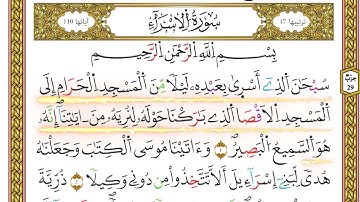 ترتيبها 17 سُورَةُ الْإِسْرَاءِ آياتها 110
بِسْمِ اللَّهِ الرَّحْمَٰنِ الرَّحِيمِ
حزب 29
سُبْحَٰنَ الَّذِے أَسْرَىٰ بِعَبْدِهِۦ لَيْلًا مِّنَ الْمَسْجِدِ الْحَرَامِ إِلَى
الْمَسْجِدِ الْأَقْصَا الَّذِے بَٰرَكْنَا حَوْلَهُۥ لِنُرِيَهُۥ مِنَ ـايَٰتِنَآ إِنَّهُۥ
هُوَ السَّمِيعُ الْبَصِيرُ ١ وَءَاتَيْنَا مُوسَى الْكِتَٰبَ وَجَعَلْنَٰهُ
هُدًى لِّبَنِےٓ إِسْرَآءِيلَ أَلَّا تَتَّخِذُوا مِن دُونِے وَكِيلًا ٢ ذُرِّيَّةَ